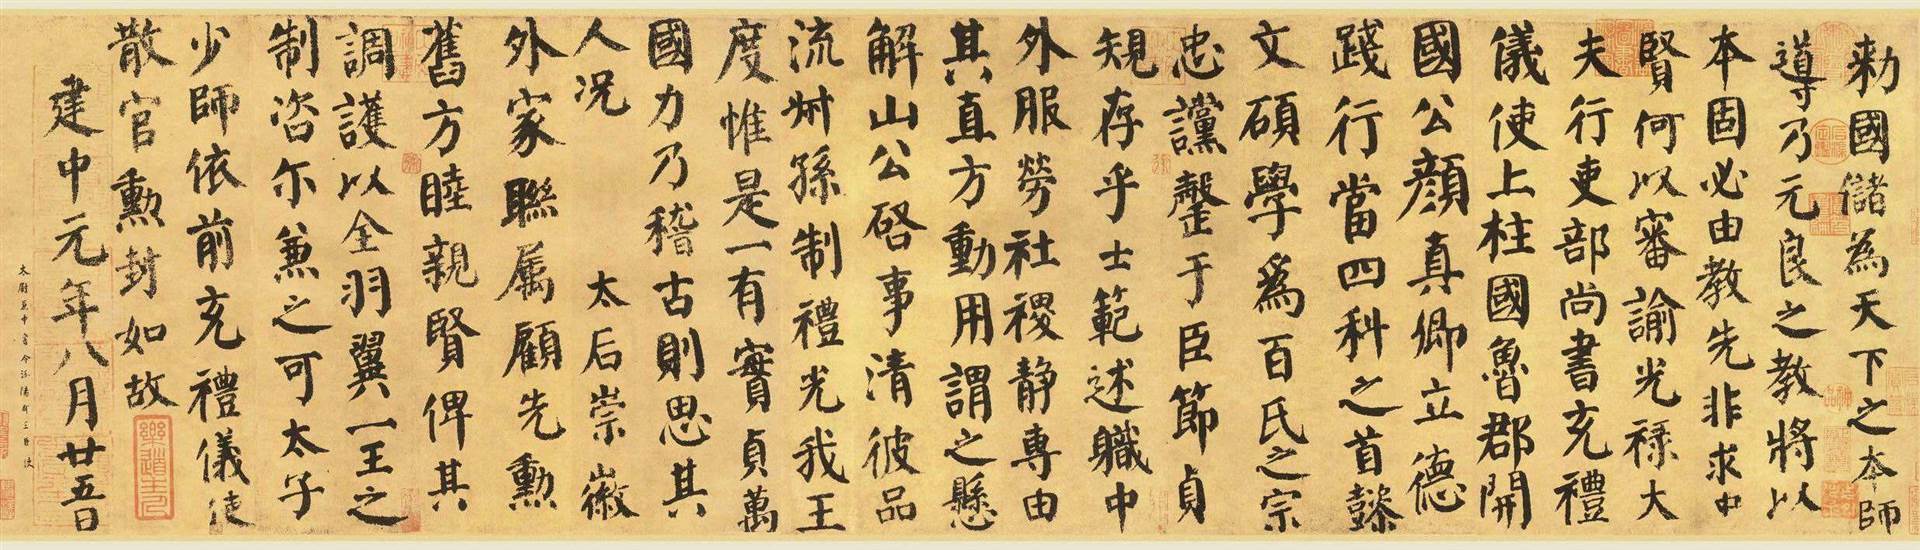 勅國儲為天下之本師
導乃元良之教將以
本固必由教先非求中
賢何以審諭光祿大
夫行吏部尚書充禮
儀使上柱國魯郡開
國公顏真卿立德
踐行當四科之首懿
文碩學爲百氏之宗
忠讜罄于臣節貞
規存乎士範述職中
外服勞社稷静專由
其直方動用謂之懸
解山公啓事清彼品
流叔孫制禮光我王
度惟是一有實貞萬
國力乃稽古則思其
人况　太后崇徽
外家聯属顧先勳
舊方睦親賢俾其
調護以全羽翼一王之
制咨尔兼之可太子
少師依前充禮儀使
散官勳封如故
建中元年八月廿五日
太尉兼中書令汾陽郡王臣 使
樂道主人